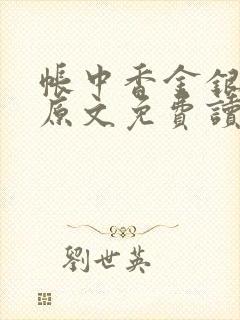 帳中香金銀
原文免費讀
劉世英